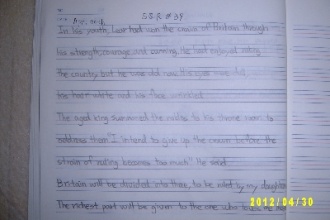 In his youth, Lear had won the crown of Britain through
his strength, courage and cunning. He had enjoyed ruling
the country but he was old now his eyes were
his hair white and his face wrinkled
The aged king summoned the nobles to his throne room to
address them "I intend to give up the crown before the
strain of ruling becomes too much" He said
Britain will be divided into three, to be ruled by my daughters
The richest part will be given to the one who
2012/04/30